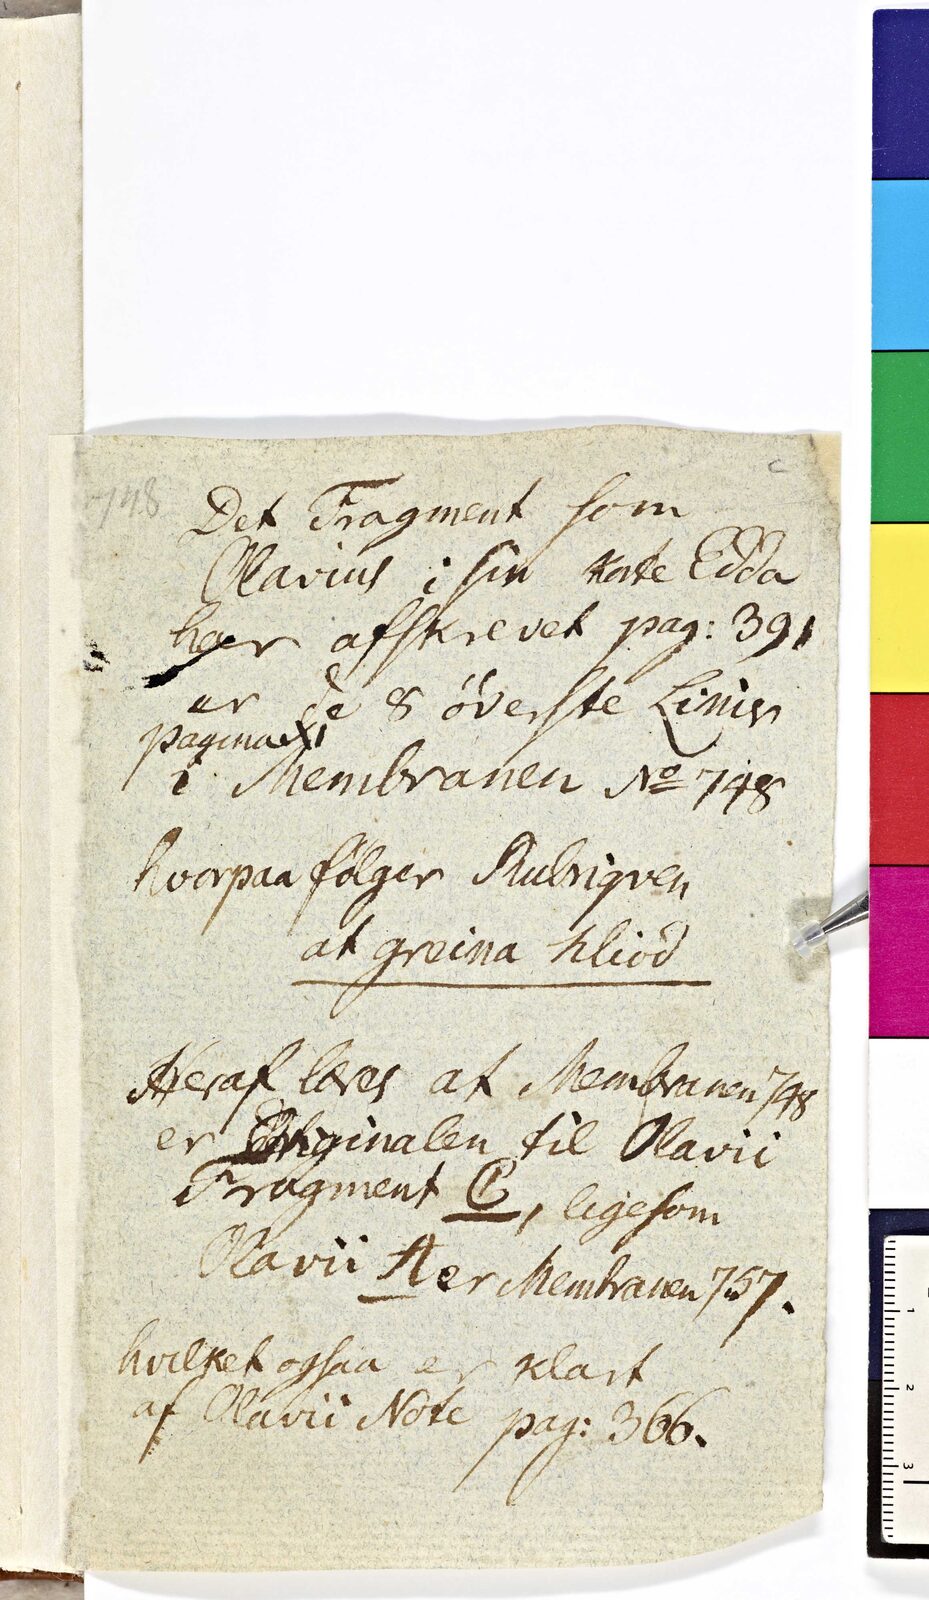 c
748
Det Fragment som
Olavius i sin korte Edda
haer afskrevet pag: 391
er de 8 överste Linier
pagina
i Membranen No 748
hvorpaa fölger Rubriqven
at greina hliod
Heraf læres at Membranen 748
er Originalen til Olavii
Fragment C, ligesom
Olavii A er Membranen 757.
hvilket ogsaa er klart
af Olavii Note pag: 366.
1
2
3